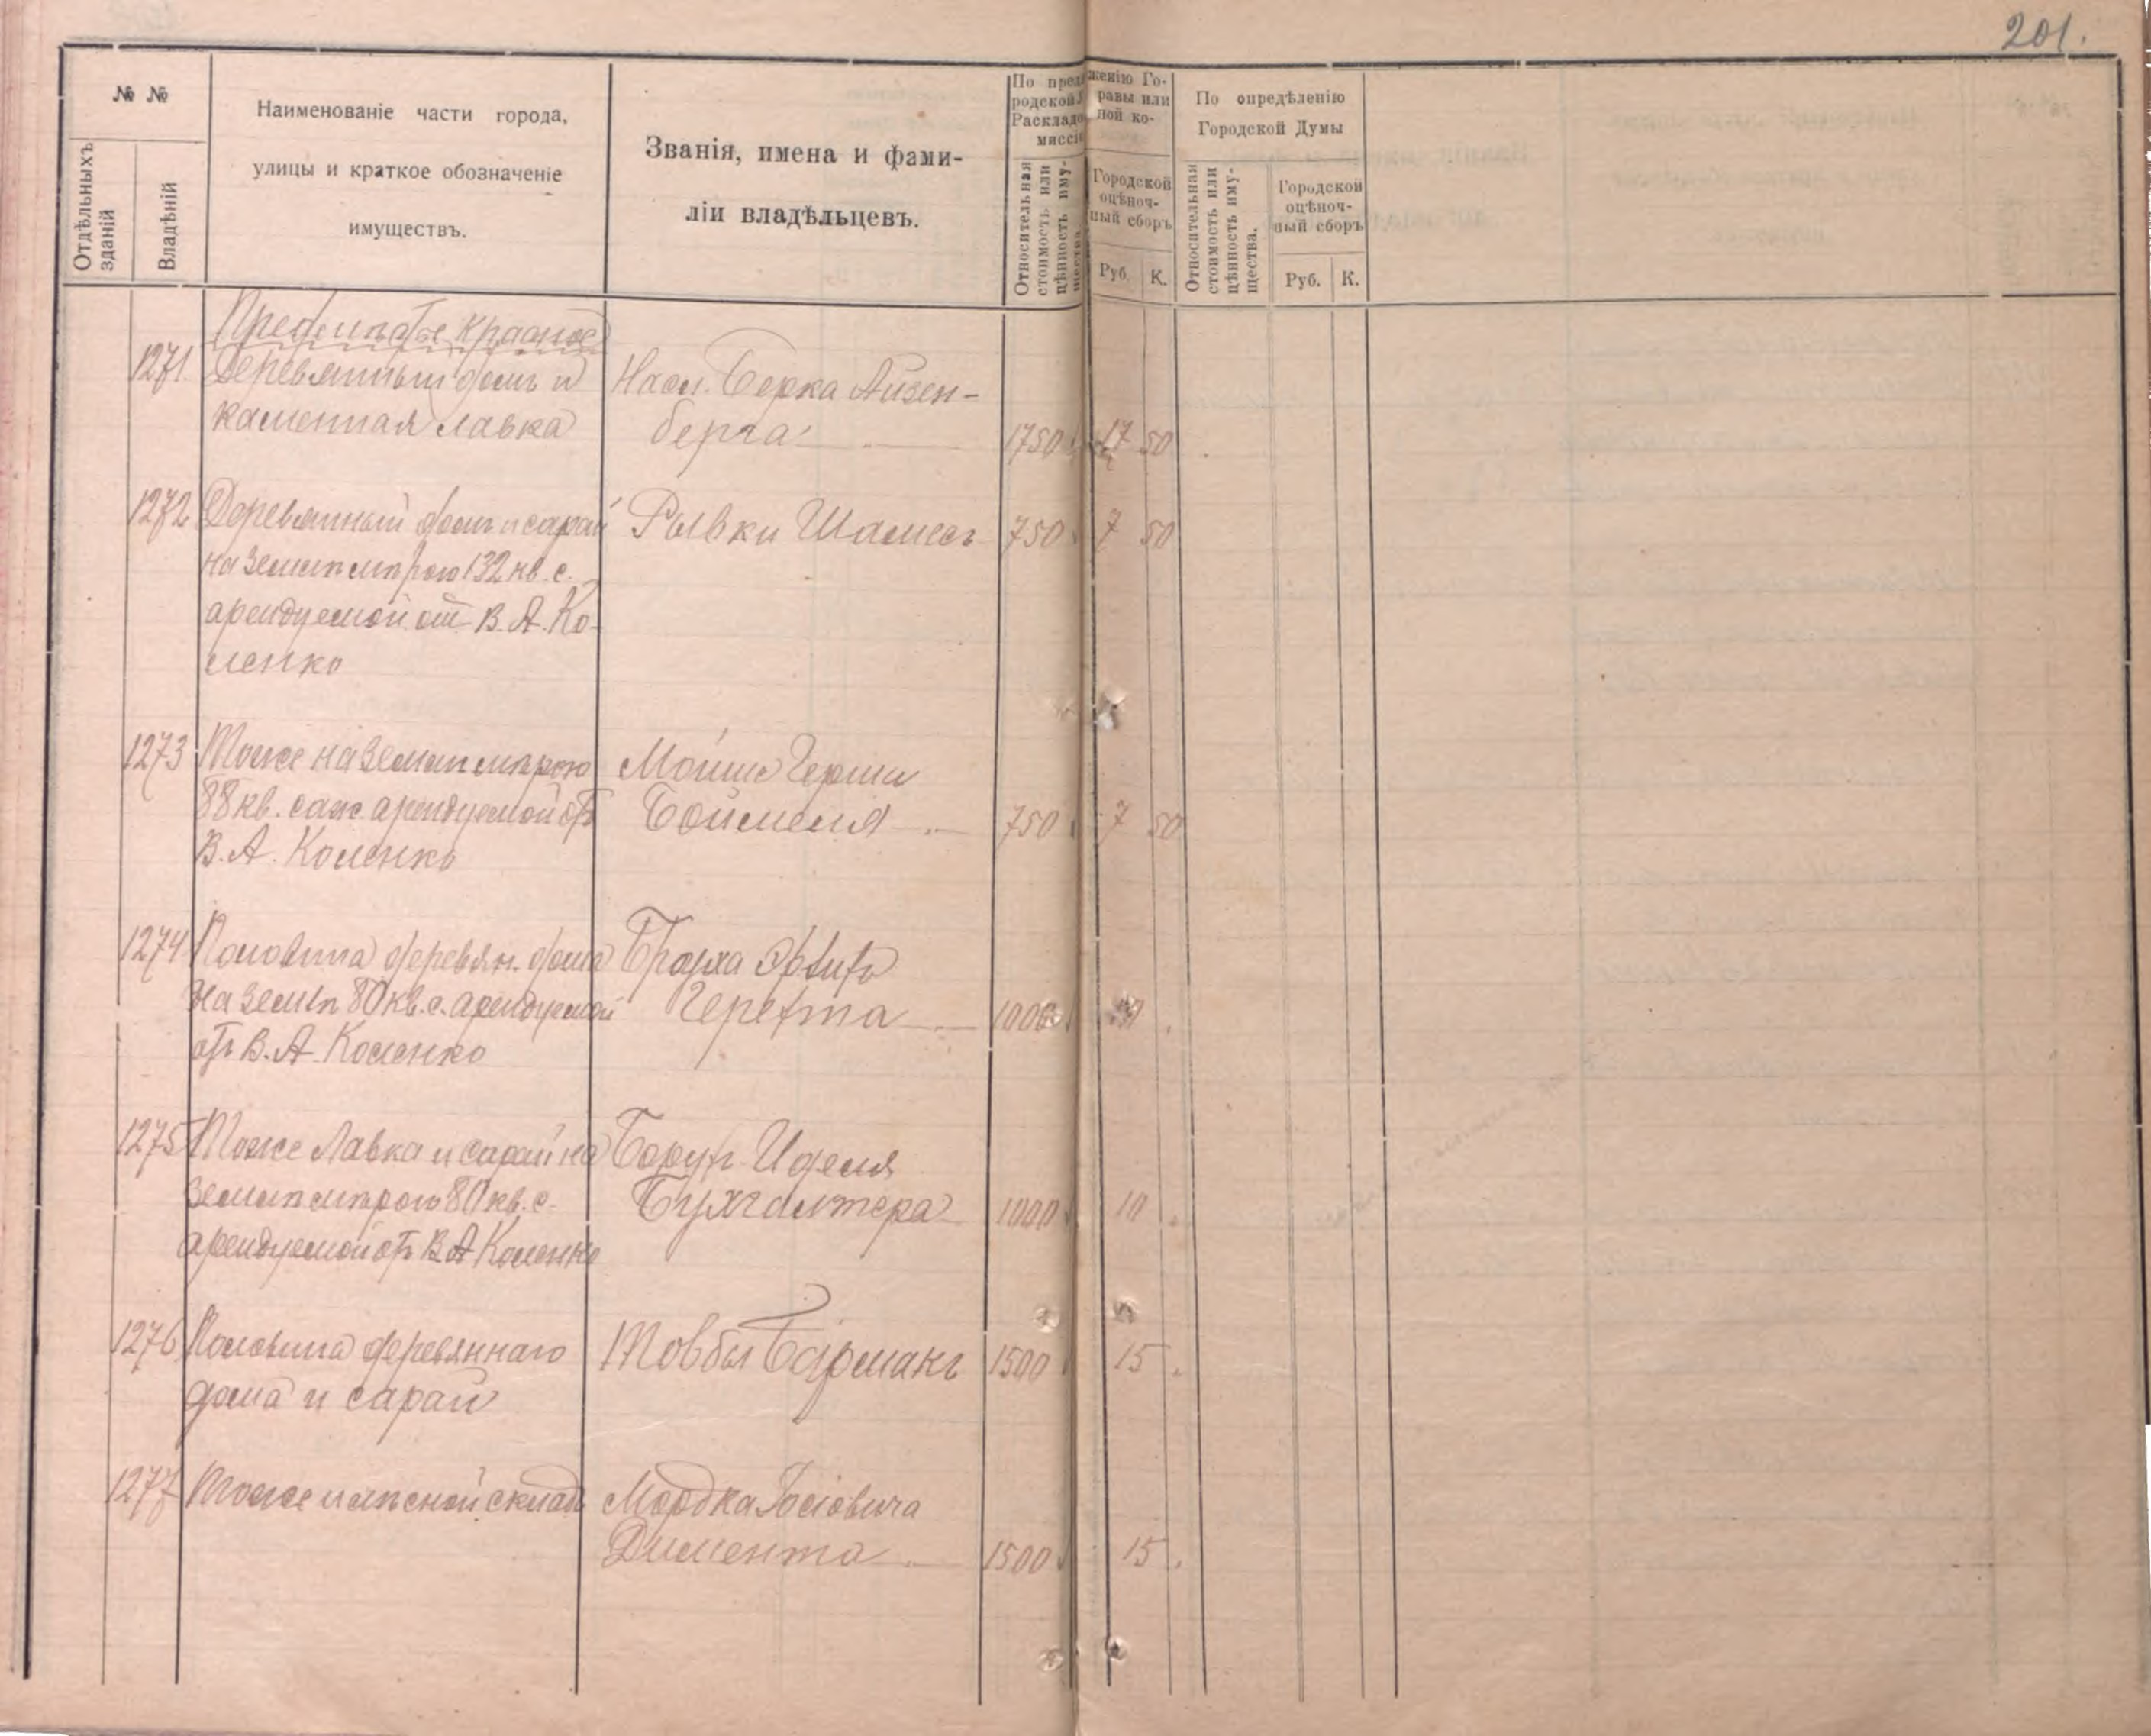 201.
№ №
Отдѣльныхъ зданій
Владѣній
Наименованіе части города,
улицы и краткое обозначеніе
имуществъ.
Званія, имена и фами-
ліи владѣльцевъ.
По предложенію Го-
родской Управы или
Раскладочной ко-
миссіи
Относительная
стоимость или
цѣнность иму-
щества.
Городской
оцѣноч-
ный сборъ
Руб. К.
По опредѣленію
Городской Думы
Относительная
стоимость или
цѣнность иму-
щества.
Городской
оцѣноч-
ный сборъ
Руб. К.
Предмѣстье Красное
1271. Деревянный домъ и
каменная лавка
Насл. Берка Айзен-
берга 1750 17 50
1272 Деревянный домъ и сарай
на землѣ мѣрою 132 кв. с.
арендуемой от В. А. Ко-
ленко
Рывки Шамесъ 750 7 50
1273 Тоже на землѣ мѣрою
88 кв. саж. арендуемой отъ
В. А. Коленко
Мойше Герши
Боймеля 750 7 50
1274 Половина деревян. дома
на землѣ 80 кв. с. арендуемой
отъ В. А. Коленко
Браха
1000
1275 Тоже лавка и сарай на
землѣ мѣрою 80 кв. с.
арендуемой отъ В А Коленко
Борух Иделя
Бухгалтера 1000 10
1276 Половина деревяннаго
дома и сарай
Товбы 1500 15
1277 Тоже и лѣсной складъ
Мордка Іосіовича
Димента 1500 15